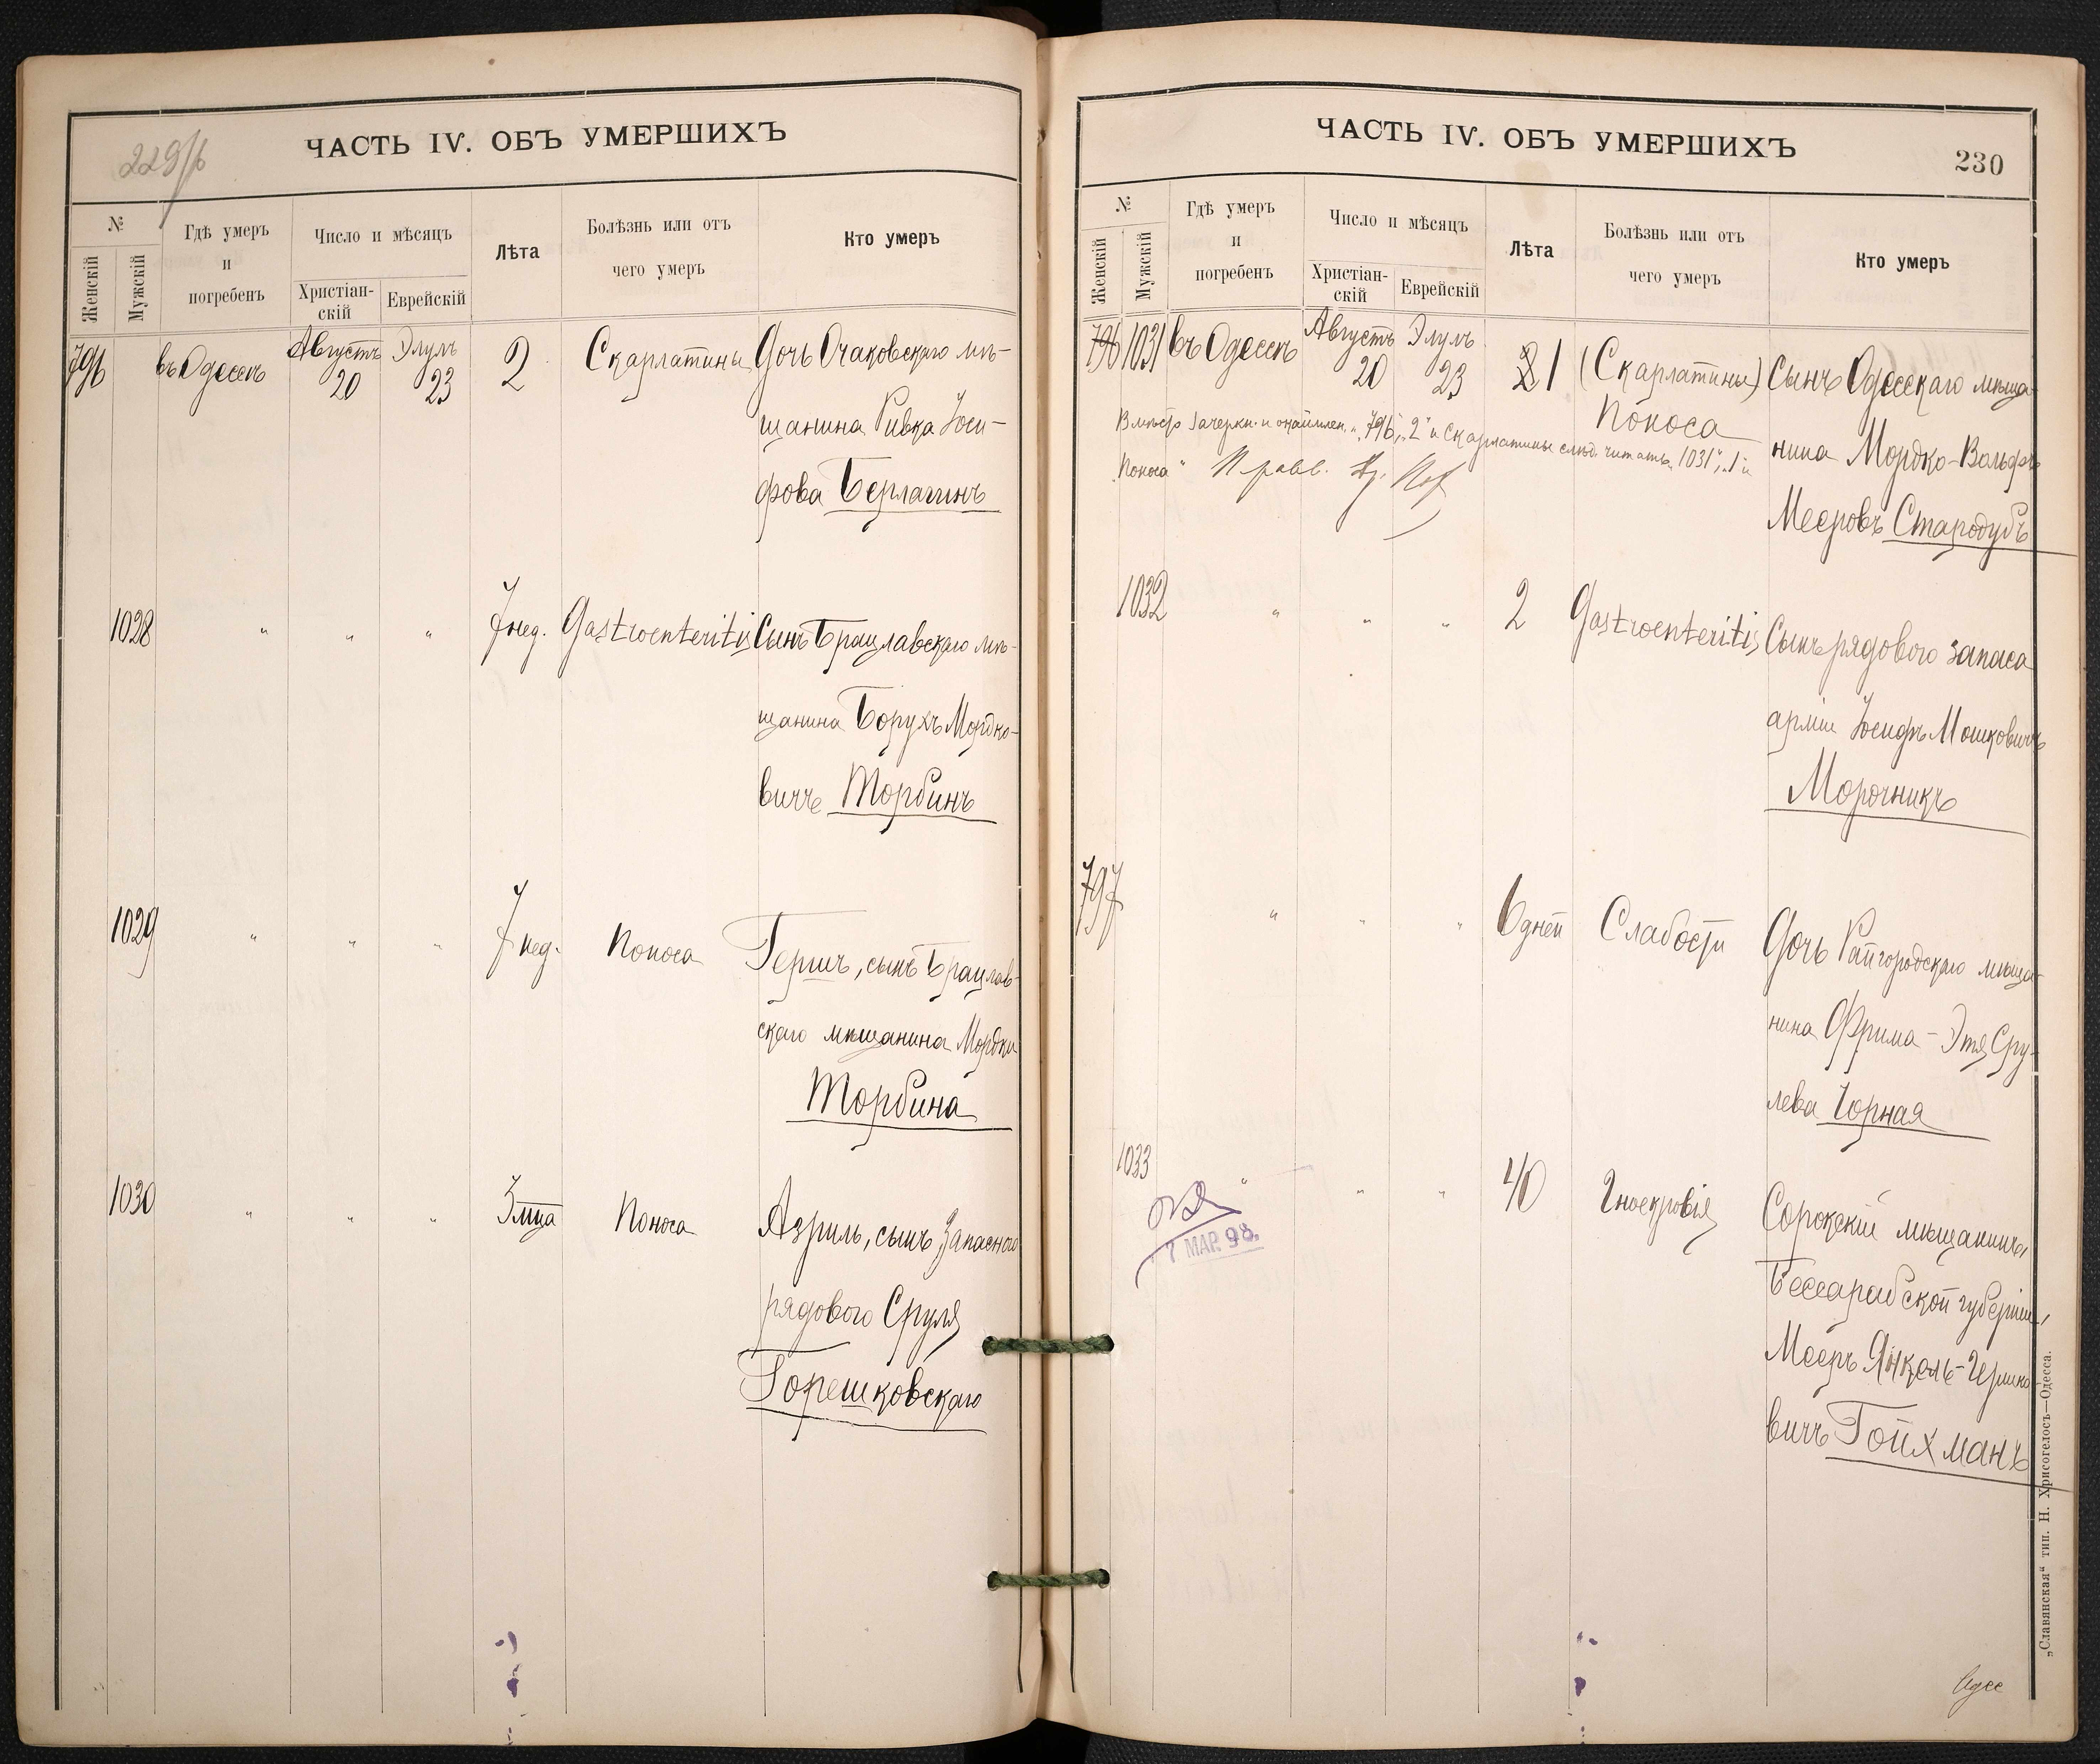 229/б
ЧАСТЬ IV. ОБЪ УМЕРШИХЪ
№
Женскій
Мужскій
Гдѣ умеръ
и
погребенъ
Число и мѣсяцъ
Христіан-
скій
Еврейскій
Лѣта
Болѣзнь или отъ
чего умеръ
Кто умеръ
796 въ Одессѣ Августъ 20 Элулъ 23 2 Скарлатины Дочь Очаковскаго мѣ-
щанина Ривка Іоси-
фова Берлагинъ
1028 " " " 7 нед. Gastroenteritis Сынъ Брацлавскаго мѣ-
щанина Борухъ Мордко-
вичъ Торбинъ
1029 " " " 7 нед. Поноса Гершъ, сынъ Брацлав-
скаго мѣщанина Мордки
Торбина
1030 " " " 3 мца Поноса Азриль, сынъ Запаснаго
рядового Сруля
Горешковскаго
ЧАСТЬ IV. ОБЪ УМЕРШИХЪ
230
№
Женскій
Мужскій
Гдѣ умеръ
и
погребенъ
Число и мѣсяцъ
Христіан-
скій
Еврейскій
Лѣта
Болѣзнь или отъ
чего умеръ
Кто умеръ
796 1031 въ Одессѣ Августъ 20 Элулъ 23 2 1 (Скарлатины) Сынъ Одесскаго мѣща-
Поноса
нина Мордко-Вольфъ
Мееровъ Стародубъ
Вмѣсто зачеркн. и окаймлен. „796", „2" и Скарлатины слѣд. читать „1031", „1" и
„Поноса"
1032 " " " 2 Gastroenteritis Сынъ рядового запаса
арміи Іосифъ Мошковичъ
Морочникъ
797 " " " 6 дней Слабости Дочь Райгородскаго мѣща-
нина Фрима-Этя Сру-
лева Чорная
1033 " " " 40 Гноекровія Сорокскій мѣщанинъ,
Бессарабской губерніи,
Мееръ Янкель-Гершко
вичъ Гойхманъ
7 МАР. 98.
Одес
„Славянская" тип. Н. Хрисогелосъ—Одесса.